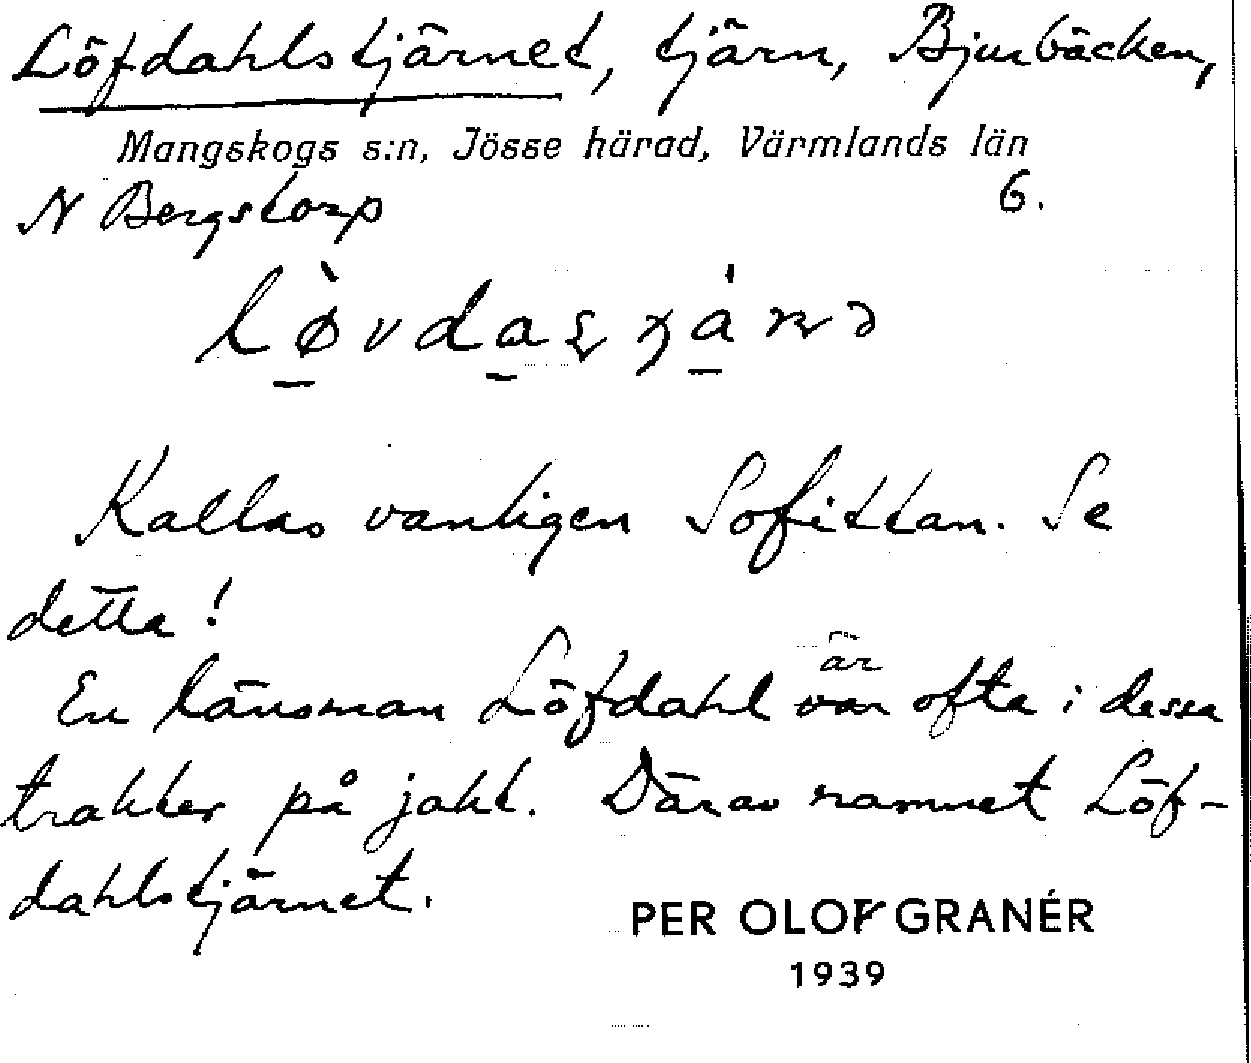 Löfdahlstjärnet, tjärn, Bjurbäcken,
Mangskogs s:n, Jösse härad, Värmlands län
N Bergstorp 6.
Kallas vanligen Sofittan. Se
detta!
är
En länsman Löfdahl var ofta i dessa
trakter på jakt. Därav namnet Löf-
dahlstjärnet.
PER OLOF GRANÉR
1939